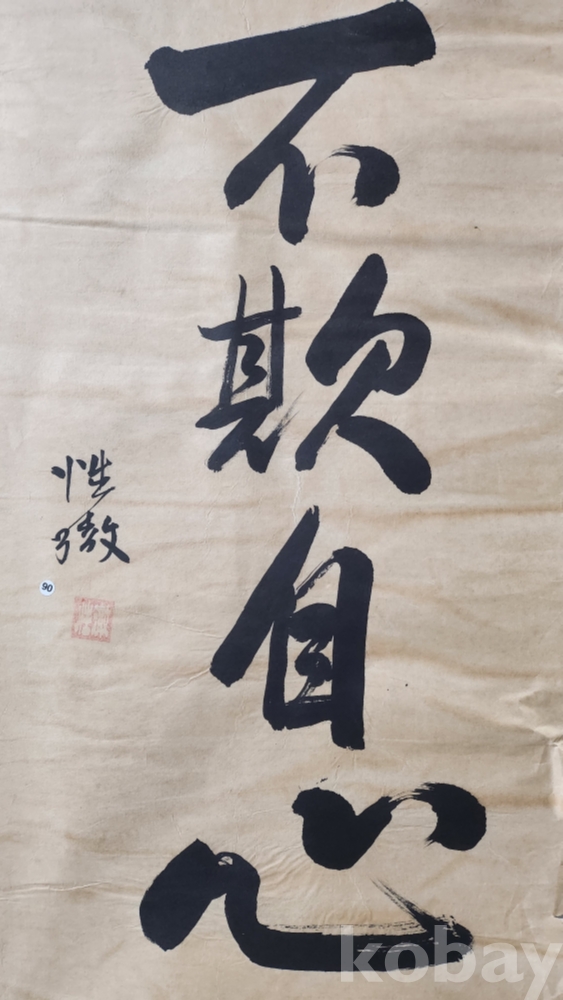 不欺自心
性徹
90
kobay